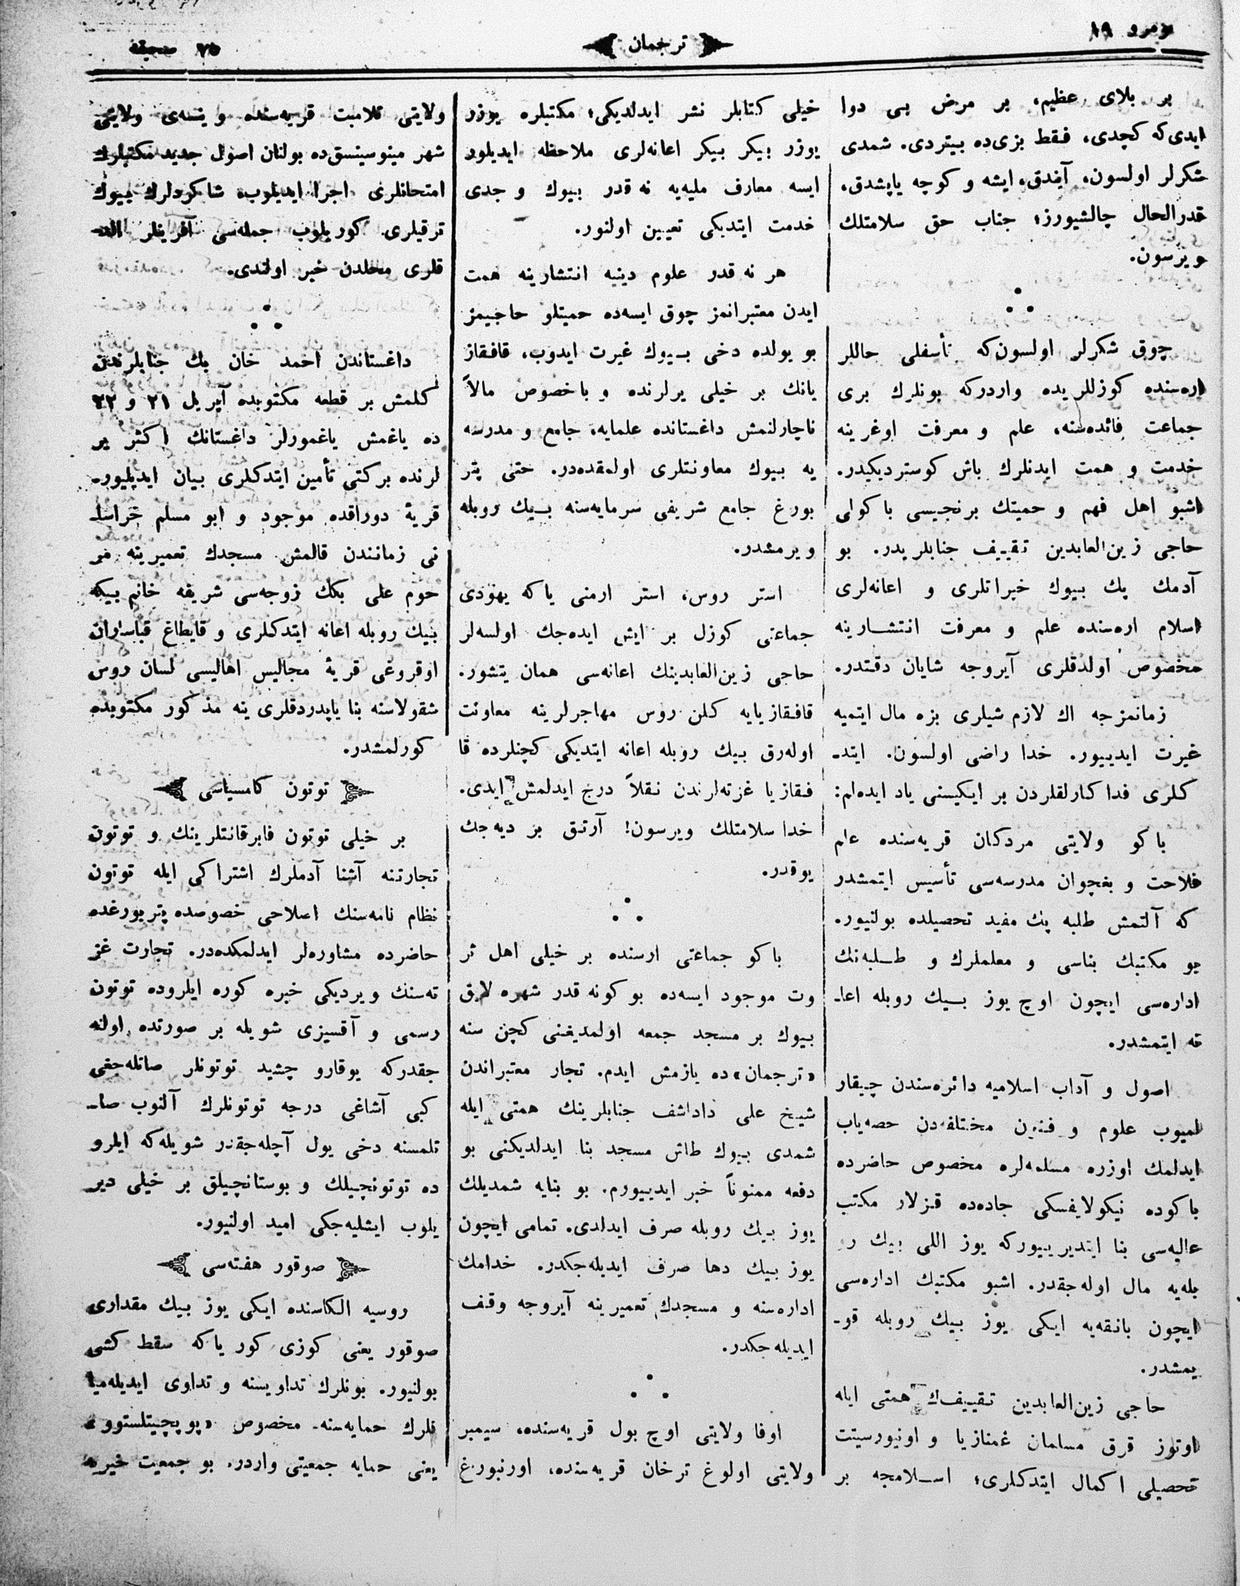 نومرو ١٩
ترجمان
٧٥ صحیفه
بر بلای عظیم، بر مرض بی دوا
ایدی‌که کچدی، فقط بزی‌ده بیتردی. شمدی
شکرلر اولسون، آیندق، ایشه و کوچه یاپشدق،
قدرالحال چالشیورز؛ جناب حق سلامتلك
ویرسون.
چوق شکرلر اولسون‌که تأسفلی حاللر
اره‌سنده کوزللریده واردرکه بونلرك بری
جماعت فائده‌سنه، علم و معرفت اوغرینه
خدمت و همت ایدنلرك باش کوستردیکیدر.
اشبو اهل فهم و حمیتك برنجیسی باکولی
حاجی زین‌العابدین تقییف جنابلریدر. بو
آدمك پك بیوك خیراتلری و اعانه‌لری
اسلام اره‌سنده علم و معرفت انتشارینه
مخصوص اولدقلری آیروجه شایان دقتدر.
زمانمزجه اك لازم شیلری بزه مال ایتمیه
غیرت ایدییور. خدا راضی اولسون. ایتد‌ـ
کلری فداکارلقلردن بر ایکیسنی یاد ایده‌لم:
باکو ولایتی مردکان قریه‌سنده علم
فلاحت و بغچوان مدرسه‌سی تأسیس ایتمشدر
که آلتمش طلبه پك مفید تحصیلده بولنیور.
بو مکتبك بناسی و معلملرك و طلبه‌نك
اداره‌سی ایچون اوچ یوز بیك روبله اعاـ
نه ایتمشدر.
اصول و آداب اسلامیه دائره‌سندن چیقار
لمیوب علوم و فنون مختلفه‌دن حصه‌یاب
ایدلمك اوزره مسلمه‌لره مخصوص حاضرده
باکوده نیکولایفسکی جاده‌ده قزلار مکتب
عالیه‌سی بنا ایتدیرییورکه یوز اللی بیك رو
بله‌یه مال اوله‌جقدر. اشبو مکتبك اداره‌سی
ایچون بانقه‌یه ایکی یوز بیك روبله قوـ
یمشدر.
حاجی زین‌العابدین تقییف‌ك همتی ایله
اوتوز قرق مسلمان غمنازیا و اونیورسیتت
تحصیلی اکمال ایتدکلری؛ اسلامجه بر
خیلی کتابلر نشر ایدلدیکی؛ مکتبلره یوزر
یوزر بیکر بیکر اعانه‌لری ملاحظه ایدیلور
ایسه معارف ملیه‌یه نه قدر بیوك و جدی
خدمت ایتدیکی تعیین اولنور.
هر نه قدر علوم دینیه انتشارینه همت
ایدن معتبرانمز چوق ایسه‌ده حمیتلو حاجیمز
بو یولده دخی بیوك غیرت ایدوب، قافقاز
یانك بر خیلی یرلرنده و باخصوص مالاً
ناچارلنمش داغستانده علمایه، جامع و مدرسه
یه بیوك معاونتلری اولمقده‌در. حتی پتر
بورغ جامع شریفی سرمایه‌سنه بیك روبله
ویرمشدر.
استر روس، استر ارمنی یاکه یهودی
جماعتی کوزل بر ایش ایده‌جك اولسه‌لر
حاجی زین‌العابدینك اعانه‌سی همان یتشور.
قافقازیایه کلن روس مهاجرلرینه معاونت
اوله‌رق بیك روبله اعانه ایتدیکی کچنلرده قا
فقازیا غزته‌لرندن نقلاً درج ایدلمش ایدی.
خدا سلامتلك ویرسون! آرتق بز دیه‌جك
یوقدر.
باکو جماعتی ارسنده بر خیلی اهل ثر
وت موجود ایسه‌ده بو کونه قدر شهره لایق
بیوك بر مسجد جمعه اولمدیغنی کچن سنه
«ترجمان»ده یازمش ایدم. تجار معتبراندن
شیخ علی داداشف جنابلرینك همتی ایله
شمدی بیوك طاش مسجد بنا ایدلدیکنی بو
دفعه ممنوناً خبر ایدییورم. بو بنایه شمدیلك
یوز بیك روبله صرف ایدلدی. تمامی ایچون
یوز بیك دها صرف ایدیله‌جکدر. خدامك
اداره‌سنه و مسجدك تعمیرینه آیروجه وقف
ایدیله‌جکدر.
اوفا ولایتی اوچ بول قریه‌سنده، سیمبر
ولایتی اولوغ ترخان قریه‌سنده، اورنبورغ
ولایتی قریه‌سنده و ولایتی
شهر مینوسینسق‌ده بولنان اصول جدید مکتبلرك
امتحانلری اجرا ایدیلوب، شاکردلرك بیوك
ترقیلری کوریلوب جمله‌سی آفرینلر
قلری محلدن خبر اولندی.
داغستاندن احمد خان بك جنابلرندن
کلمش بر قطعه مکتوبده آپریل ٢١ و ٢٢
ده یاغمش یاغمورلر داغستانك اکثر یر
لرنده برکتی تأمین ایتدکلری بیان ایدیلیور.
قریهٔ دوراقده موجود و ابو مسلم خراسا‌ـ
نی زمانندن قالمش مسجدك تعمیرینه مر
حوم علی بکك زوجه‌سی شریفه خانم بیکه
بیك روبله اعانه ایتدکلری و قایطاغ
اوقروغی قریهٔ مجالیس اهالیسی لسان روس
شقولاسنه بنا یاپدردقلری ینه مذکور مکتوبده
کورلمشدر.
توتون کامسیاسی
بر خیلی توتون فابرقانتلرینك و توتون
تجارتنه آشنا آدملرك اشتراکی ایله توتون
نظام نامه‌سنك اصلاحی خصوصده پتربورغده
حاضرده مشاوره‌لر ایدلمکده‌در. تجارت غز
ته‌سنك ویردیکی خبره کوره ایلروده توتون
رسمی و آقسیزی شویله بر صورتده اوله
جقدرکه یوقارو چشید توتونلر صاتله‌جغی
کبی آشاغی درجه توتونلرك آلنوب صاـ
تلمسنه دخی یول آچله‌جقدر شویله‌که ایلرو
ده توتونچیلك و بوستانچیلق بر خیلی دیر
یلوب ایشلیه‌جکی امید اولنیور.
صوقور هفته‌سی
روسیه الکاسنده ایکی یوز بیك مقداری
صوقور یعنی کوزی کور یاکه سقط کشی
بولنیور. بونلرك تداویسنه و تداوی ایدیله‌میا
نلرك حمایه‌سنه مخصوص «پوپچیتلستوو»
یعنی حمایه جمعیتی واردر. بو جمعیت خیریه